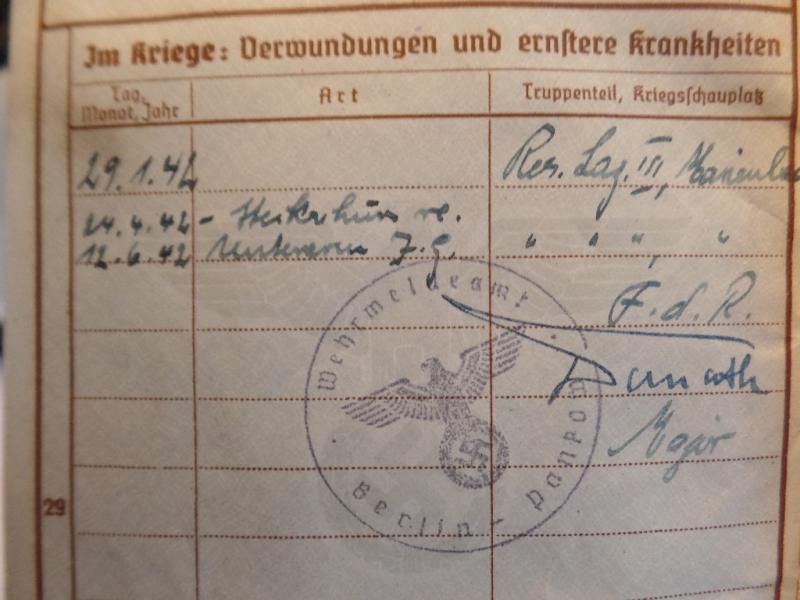 Im Kriege: Verwundungen und ernstere Krankheiten
Tag, Monat, Jahr
Art
Truppenteil, Kriegsschauplatz
29.1.42
Res. Laz. III,
24.4.42 - re.
12.6.42 Unterarm J.G. " " ", "
F.d.R.
Major
Wehrmeldeamt
Berlin - Pankow
29